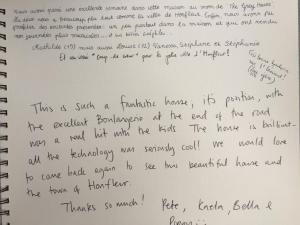 Nous avons passé une excellente semaine dans cette maison au nom de The Grey House.
Elle nous a beaucoup plu tout comme la ville de Honfleur. Enfin, nous avons pu
profiter des activités présentes un peu partout dans la maison et qui ont rendu
nos journées plus
Mathilde (15) mais aussi Louise (12) Vanessa, Stéphane et Stéphanie
Et un vrai "coup de cœur" pour la jolie ville d'Honfleur!
This is such a fantastic house, it's position, with
the excellent Boulangerie at the end of the road
was a real hit with the kids. The house is brilliant -
all the technology was seriously cool! We would love
to come back again to see this beautiful house and
the town of Honfleur.
Thanks so much! Pete, Knela, Bella &